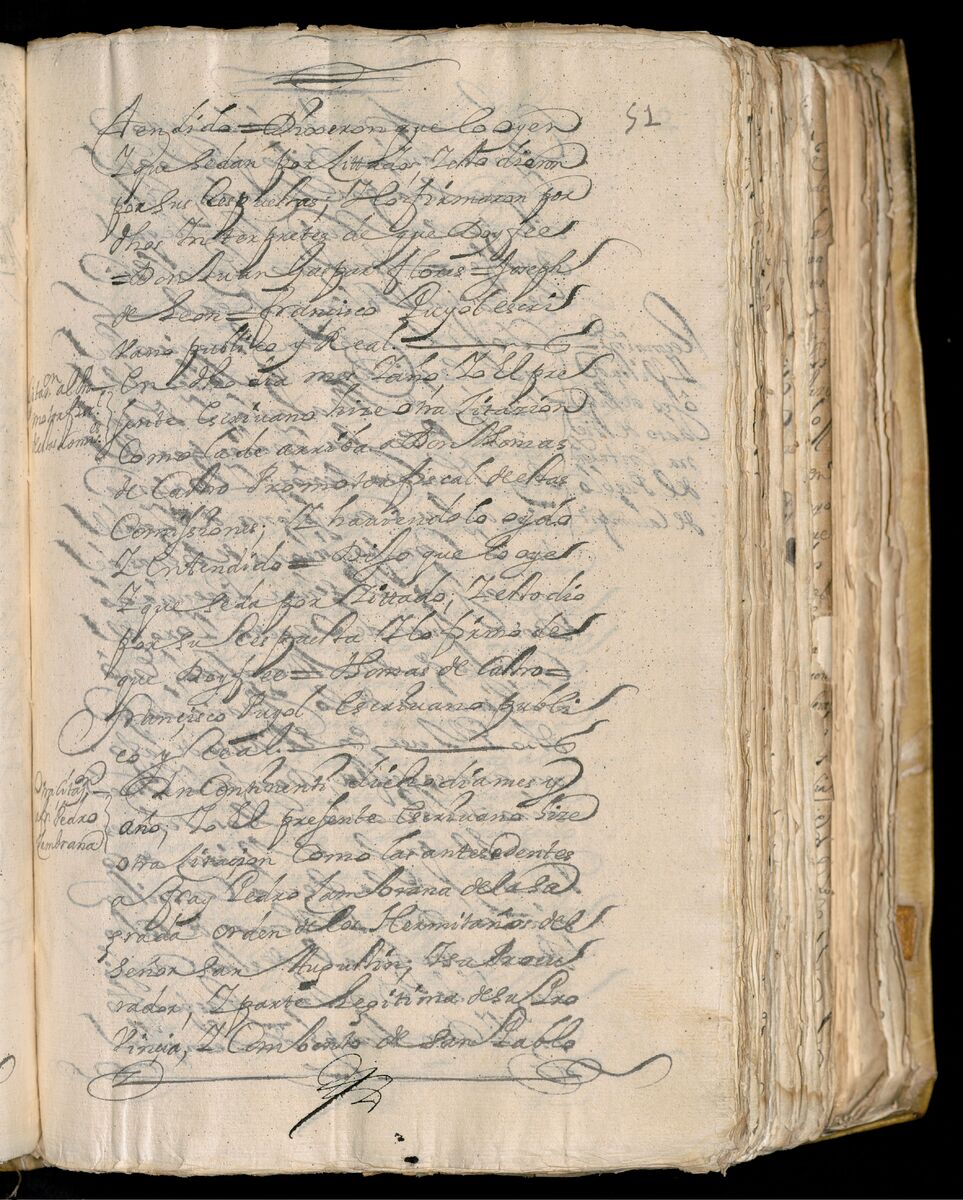 51
tendido = Dixeron que lo oyen
Y que se dan por Cittados, Y esto dieron
por sus Respuestas; Y lo firmaron por
dhos Interpretes de que Doy fee
= Don Juan Gaspar flores = Joseph
de Leon = francisco Pugol escri
vano publico y Real.
En dho dia mes Y año, Yo El pre
sente Escriuano hize otra Citazion
Como la de arriba a Don Thomas
de Castro Promotor fiscal de estas
Comissiones, Y haviendolo oydo
Y Entendido = Disso que lo oye
Y que se da por Zittado; Y esto dio
por su Respuesta Y lo firmó de
que Doy fee = Thomas de Castro =
francisco Pugol Escriuano publi
co y Real.
Otra Citaz.
a fr. Pedro
Zambrana
En Continenti dicho dia mes y
año, Yo El presente Escriuano hize
otra Citacion Como las antesedentes
a fray Pedro Zambrana de la Sa
grada orden de los Hermitaños del
señor san Augustin, Y su Procu
rador, Y parte Legitima de su Pro
Vincia, Y Combento de San Pablo